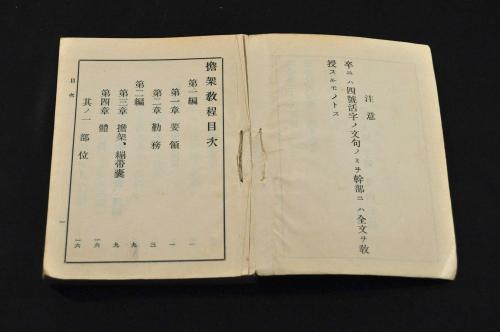 注意
卒ニハ四號活字ノ文句ノミヲ幹部ニハ全文ヲ敎
授スルモノトス
擔架敎程目次
第一編 一
第一章 要領 一
第二章 勤務 三
第二編 九
第三章 擔架、繃帶囊 九
第四章 體 一六
其ノ一 部位 一六
目次
一